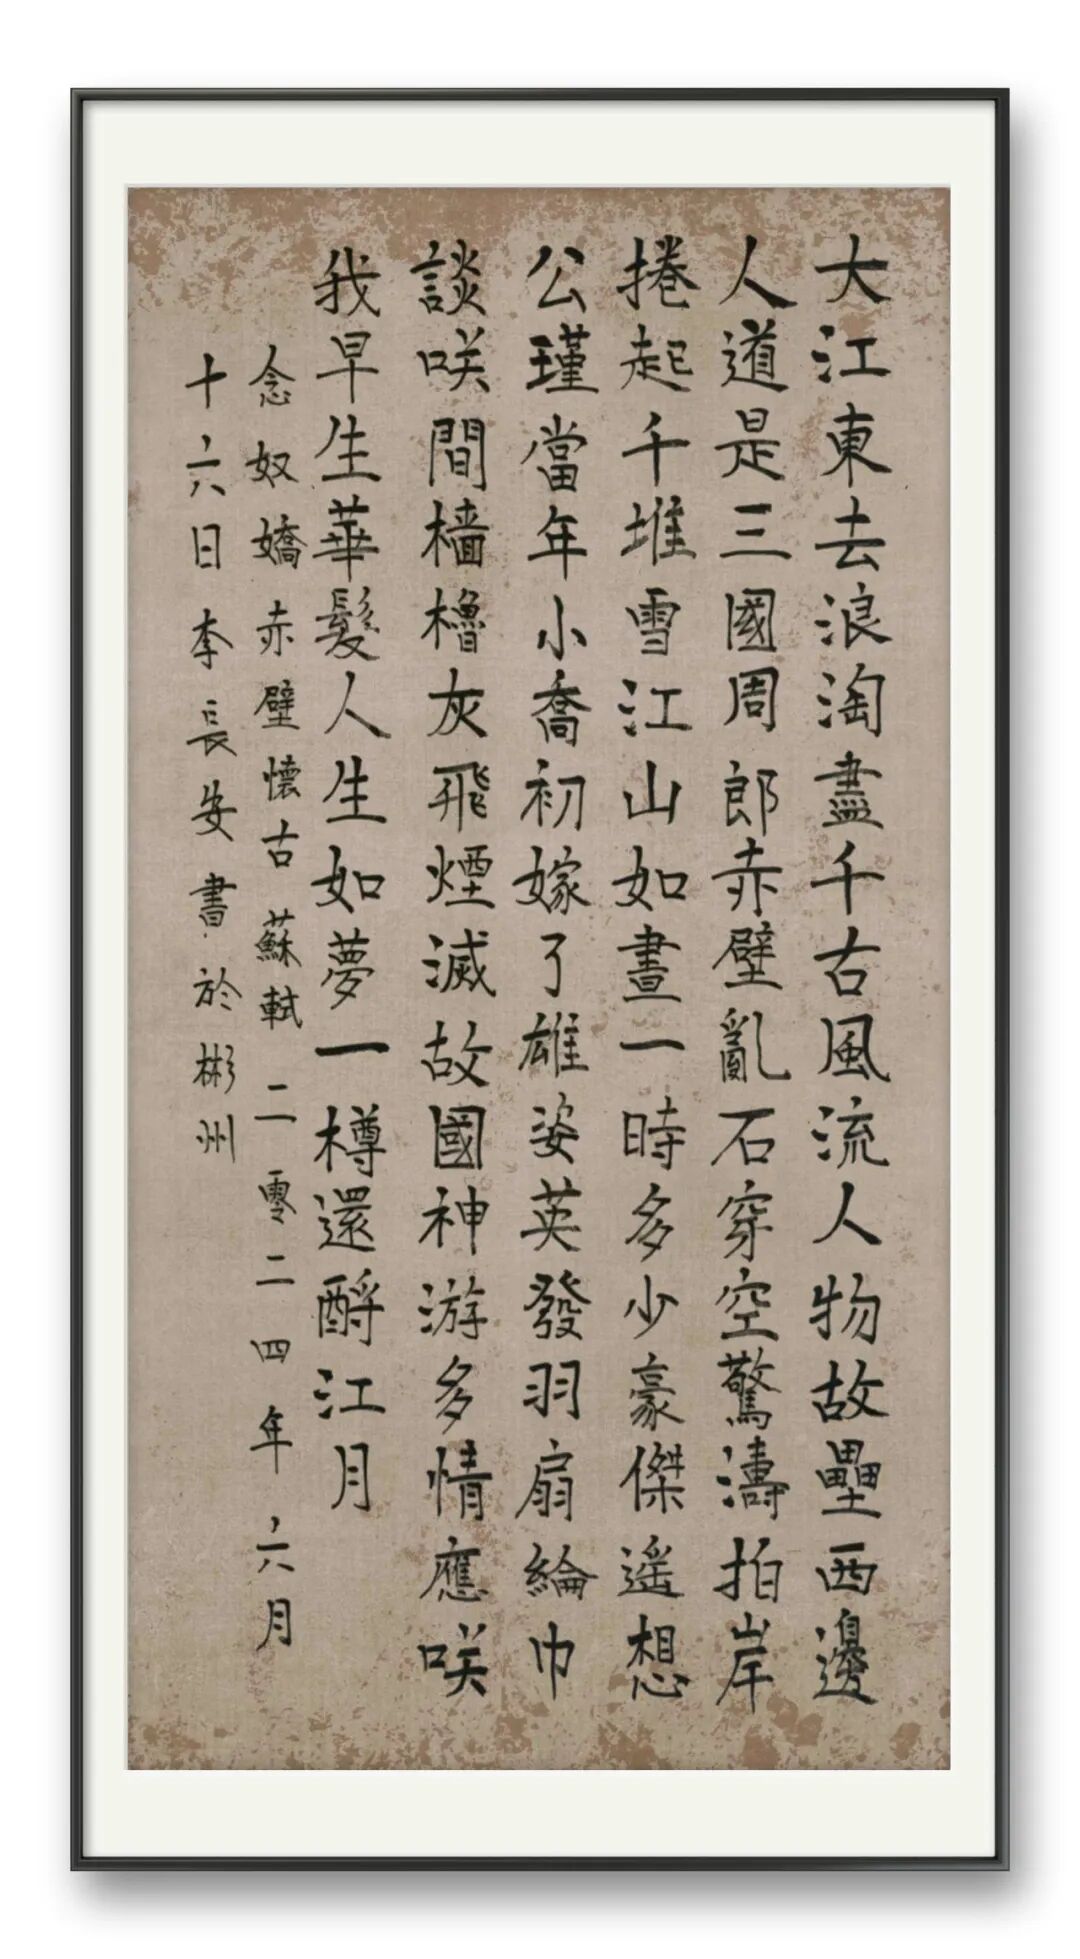 大江東去浪淘盡千古風流人物故壘西邊
人道是三國周郎赤壁亂石穿空驚濤拍岸
捲起千堆雪江山如畫一時多少豪傑遙想
公瑾當年小喬初嫁了雄姿英發羽扇綸巾
談咲間檣櫓灰飛煙滅故國神游多情應咲
我早生華髮人生如夢一樽還酹江月
念奴嬌赤壁懷古 蘇軾 二零二四年六月
十六日李長安書於彬州